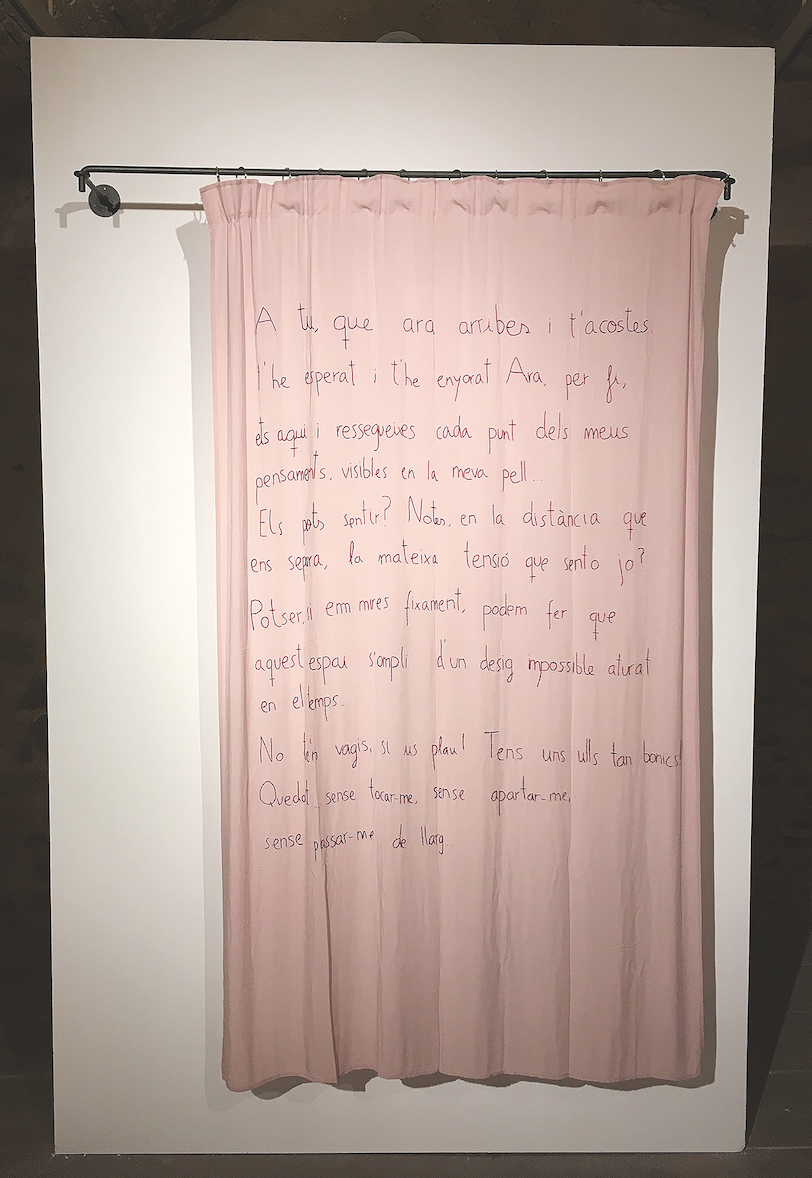 A tu, que ara arribes i t'acostes
t'he esperat i t'he enyorat Ara, per fi,
ets aqui i ressegueixes cada punt dels meus
pensaments, visibles en la meva pell...
Els pots sentir? Notes, en la distància que
ens separa, la mateixa tensió que sento jo?
Potser, si em mires fixament, podem fer que
aquest espai s'ompli d'un desig impossible aturat
en el temps.
No te'n vagis, si us plau! Tens uns ulls tan bonics!
Queda't sense tocar-me, sense apartar-me,
sense passar-me de llarg...